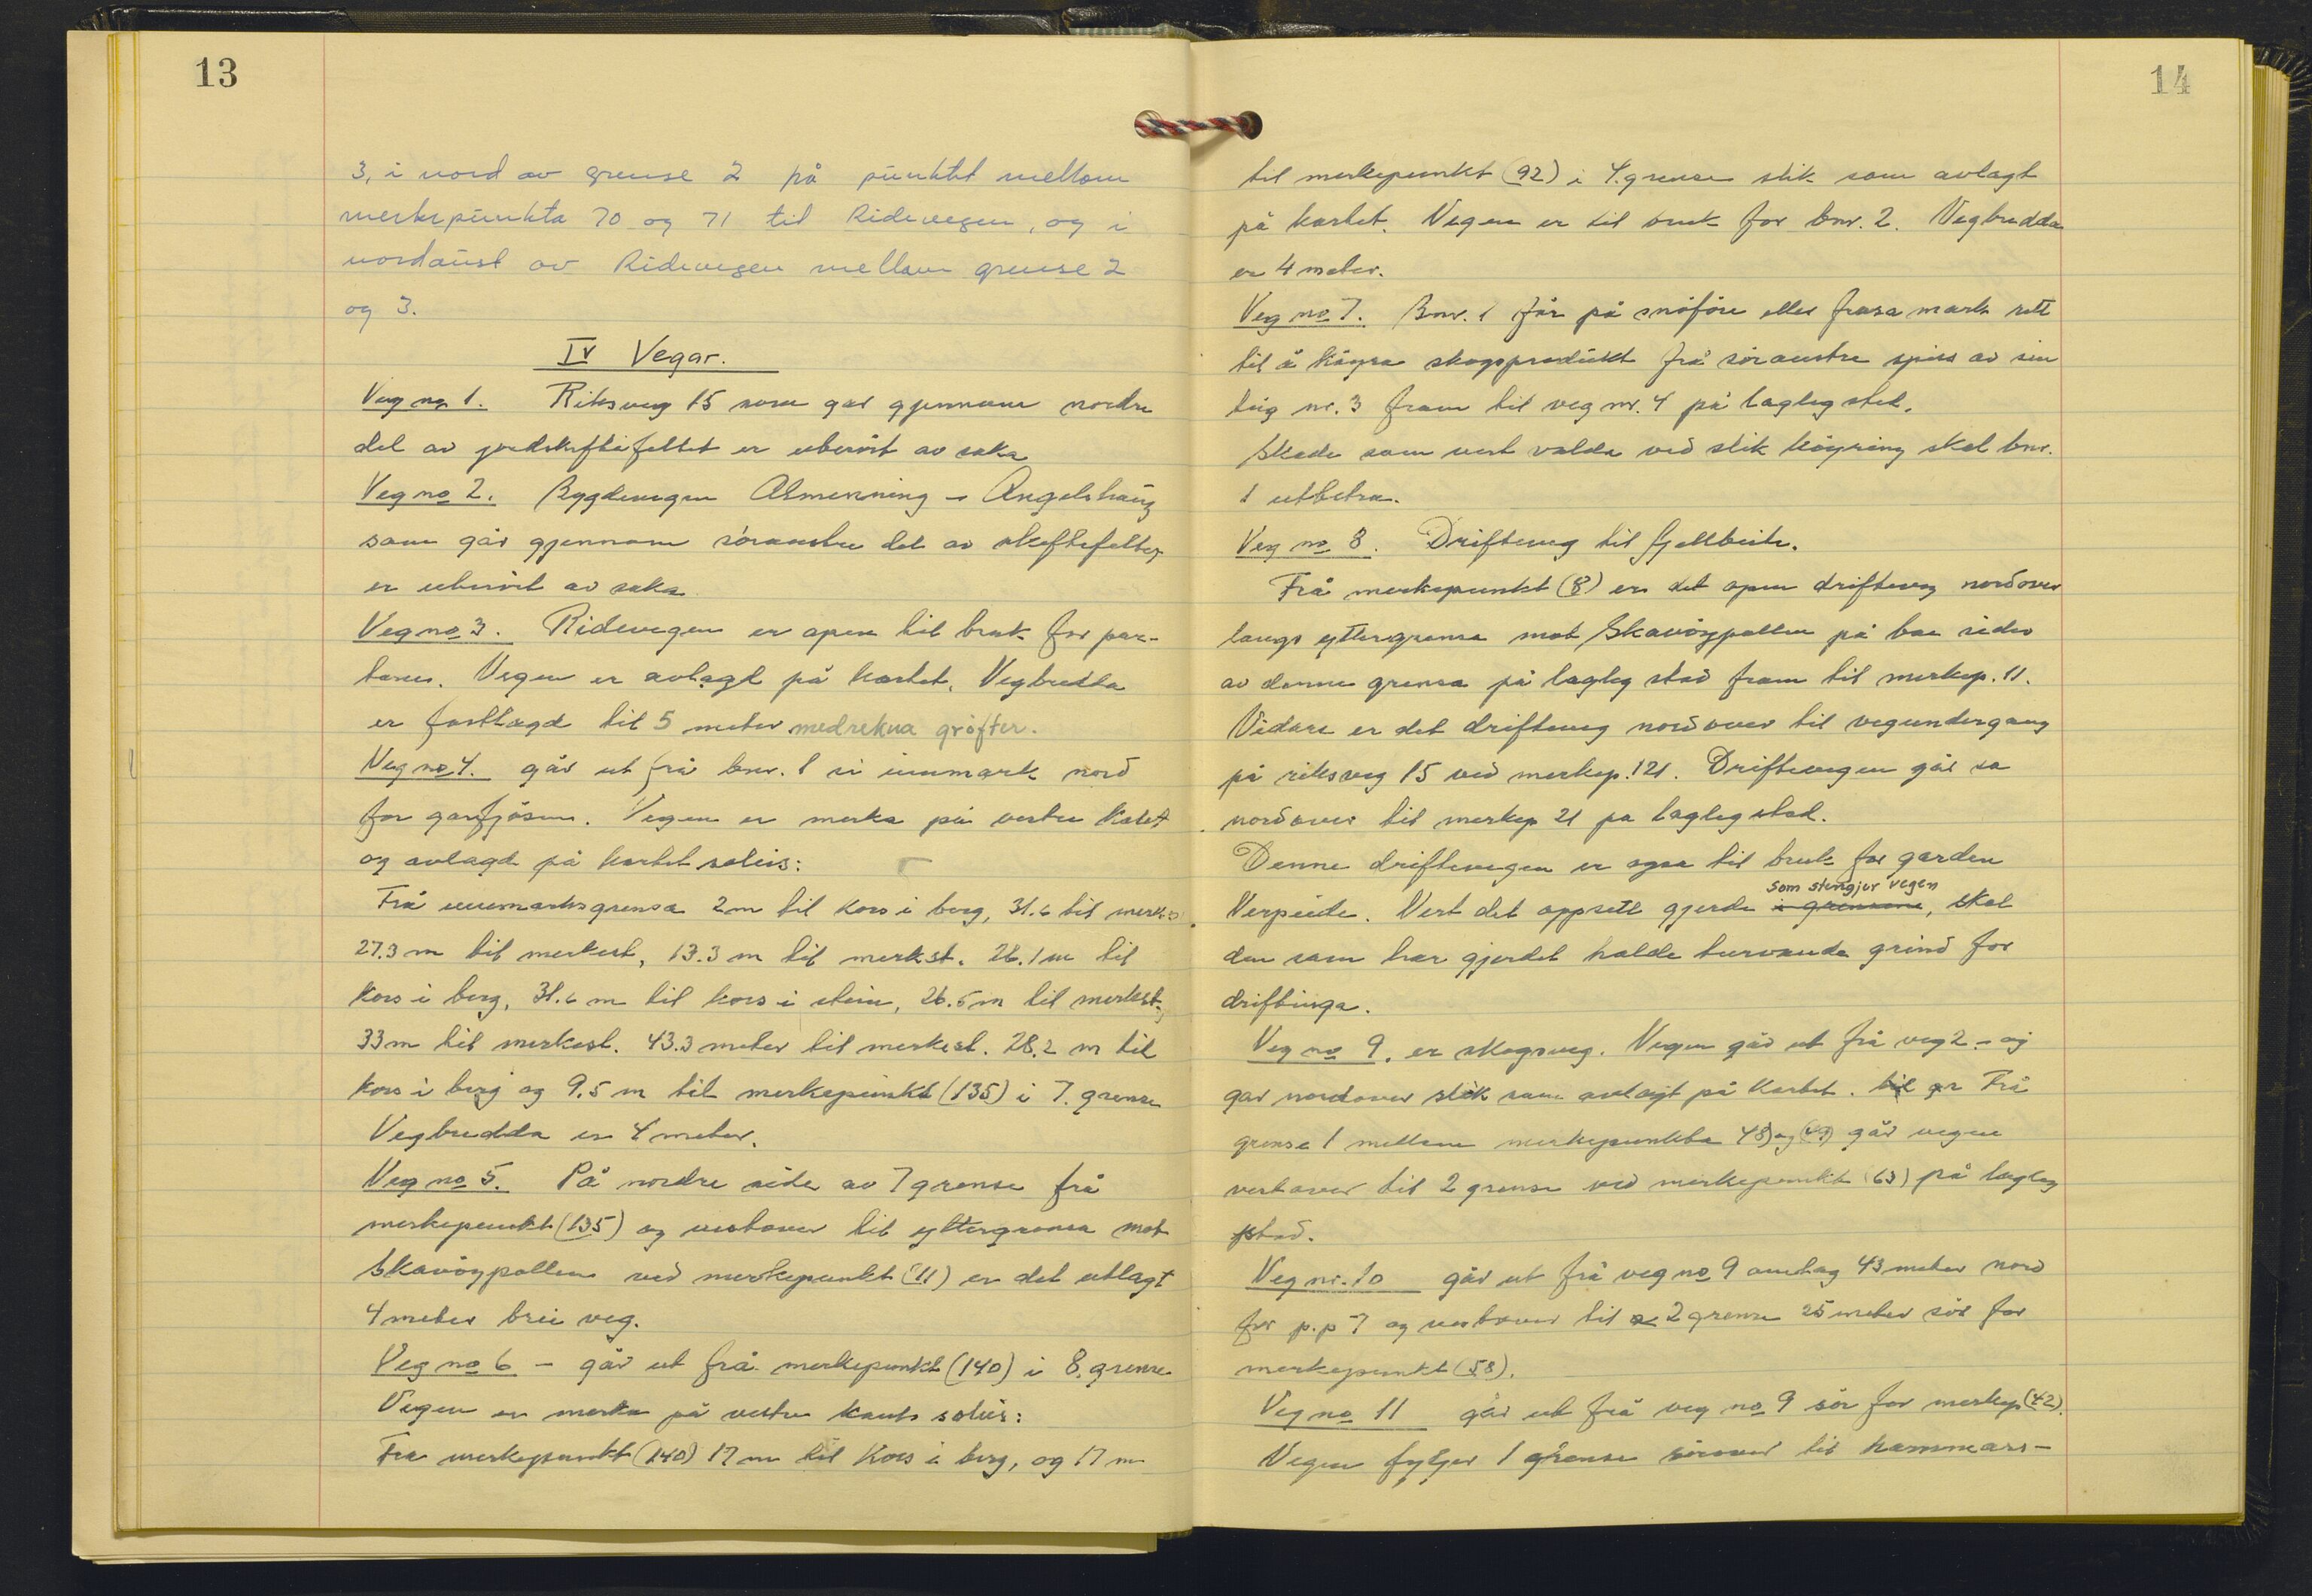 13
3, i nord av grense 2 på punktet mellom
merkepunkta 70 og 71 til Ridevegen, og i
nordaust av Ridevegen mellom grense 2
og 3.
IV Vegar.
Veg no 1. Riksveg 15 som går gjennom nordre
del av jordskiftefeltet er uberört av saka
Veg no 2. Bygdevegen Almenning – Angelshaug
som går gjennom söraustre del av skiftefeltet
er uberört av saka
Veg no 3. Ridevegen er open til bruk for par-
tane. Vegen er avlagt på kartet. Vegbredda
er fastlagd til 5 meter medrekna gröfter.
Veg no 4. går ut frå bnr. 1 si innmark nord
for garfjösen. Vegen er merka på vestre kant
og avlagd på kartet soleis:
Frå innmarksgrensa 2m til kors i berg, 31.6 til merkest
27.3 m til merkest, 13.3 m til merkst. 26.1 m til
kors i berg, 31.6 m til kors i stein, 26.5 m til merkest,
33 m til merkest. 43.3 meter til merkest. 28.2 m til
kors i berg og 9.5 m til merkepunkt (135) i 7. grense
Vegbredda er 4 meter.
Veg no 5. På nordre side av 7 grense frå
merkepunkt (135) og vestover til yttergrensa mot
Skavöypollen ved merkepunkt (11) er det utlagt
4 meter brei veg.
Veg no 6 – går ut frå merkepunkt (140) i 8. grense
Vegen er merka på vestre kant soleis:
Fra merkepunkt (140) 17 m til kors i berg, og 17 m
14
til merkepunkt (92) i 4. grense slik som avlagt
på kartet. Vegen er til bruk for bnr. 2. Vegbredda
er 4 meter.
Veg no 7. Bnr. 1 får på snöföre eller frosa mark rett
til å köyra skogsprodukt frå söraustre spiss av sin
teig nr. 3 fram til veg nr. 4 på lagleg sted.
Skade som vert valda ved slik köyring skal bnr.
1 utbetra.
Veg no 8. Drifteveg til fjellbeite.
Frå merkepunkt (8) er det open drifteveg nordover
langs yttergrensa mot Skavöypollen på bae sider
av denne grensa på lagleg stad fram til merkep. 11.
Vidare er det drifteveg nordover til vegundergang
på riksveg 15 ved merkep. 121. Driftevegen går sa
nordover til merkep 21 pa lagleg stad.
Denne driftevegen er ogsa til bruk for garden
som stengjer vegen
Verpeide. Vert det oppsett gjerde i grensene, skal
den som har gjerdet halde turvande grind for
driftinga.
Veg no 9. er skogsveg. Vegen går ut frå veg 2 – og
gar nordover slik som avlagt på kartet. til gr Frå
grense 1 mellom merkepunkta 48) og (49) går vegen
vestover til 2 grense ved merkepunkt (63) på lagleg
stad.
Veg nr. 10 går ut frå veg no 9 omlag 43 meter nord
for p.p 7 og vestover til 2 grense 25 meter sör for
merkepunkt (58).
Veg no 11 går ut frå veg no 9 sör for merkep (42).
Vegen fylgjer 1 grense sörover til hammars-